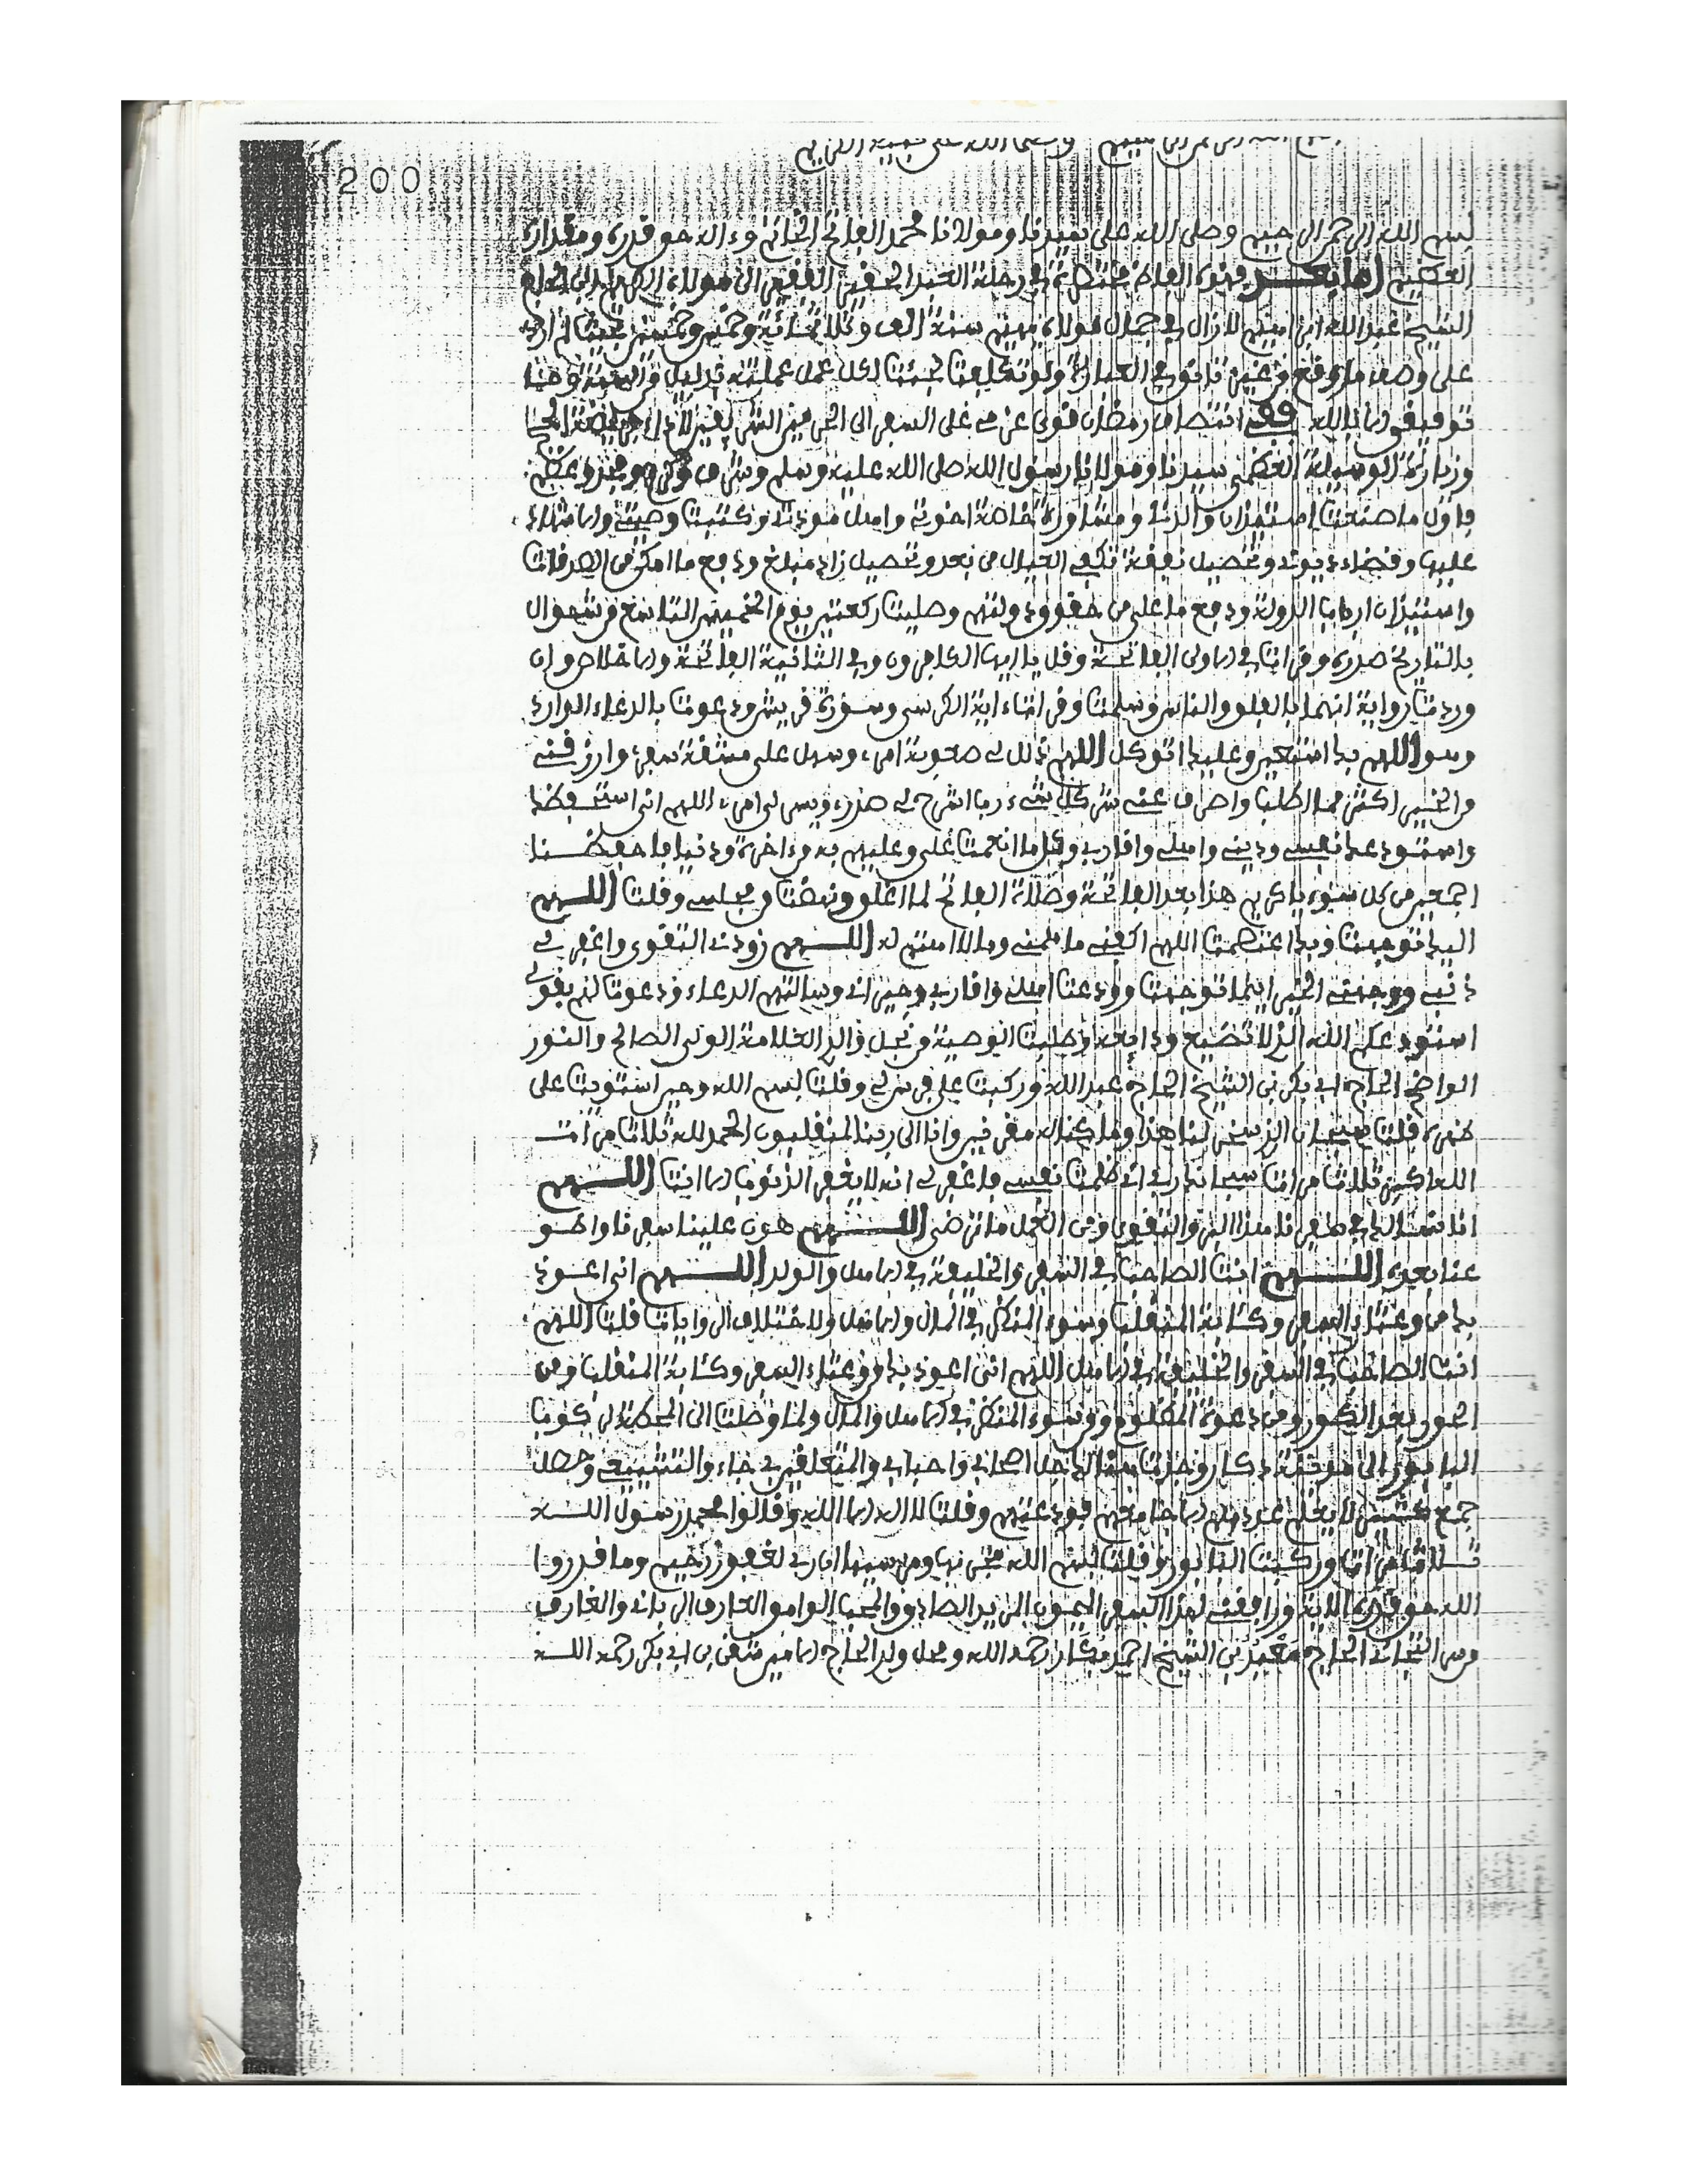 بسم الله الرحمن الرحيم وصلى الله على نبيه الكريم
200
بسم الله الرحمن الرحيم وصلى الله على سيدنا ومولانا محمد الفاتح الخاتم وءاله حق قدره ومقداره
العظيم اما بعد فهذه الفاظ مختصرة في رحلة العبد الحقير الفقير الى مولاه الحاج
الشيخ عبد الله لازال في مولاه سنة الف وثلاثمائة وخمس وخمسين
على وصف ما وقع من غير تانق في العبارة ولو تكلفت لجئت لكل عمل عملته بدليل
توفيقي الا بالله ففي رمضان قوي عزمي على السفر الى الحرمين الشريفين لاداء
وزيارة الوسيلة العظمى سيدنا ومولانا رسول الله صلى الله عليه وسلم وشرف وكرم ومجد وعظم
فاول ما صنعت استيذان والدتي ومشاورة خاصة اخوتي واهل مودتي وكتبت وصيتي والاشهاد
عليها وقضاء ديوني وتحصيل نفقة تكفي العيال من بعد وتحصيل زاد مبلغ ودفع ما امكن من الصدقات
واستيذان ارباب الدولة ودفع ما علي من حقوق دولتهم وصليت ركعتين يوم الخميس التاسع من شوال
بالتاريخ صدره وقرات في الاولى الفاتحة وقل يا ايها الكافرون وفي الثانية الفاتحة والاخلاص وان
وردت رواية انهما بالفلق والناس وسلمت وقراءة اية الكرسي وسورة قريش ودعوت بالدعاء الوارد
وهو اللهم بك استعين وعليك اتوكل اللهم ذلل لي صعوبة امري وسهل علي مشقة سفري وارزقني
من الخير اكثر مما اطلب واصرف عني شر كل شيء رب اشرح لي صدري ويسر لي امري اللهم اني استحفظك
واستودعك نفسي وديني واهلي واقاربي وكل ما انعمت علي وعليهم به من ءاخرة ودنيا فاحفظنا
اجمعين من كل سوء يا كريم هذا بعد الفاتحة وصلاة الفاتح لما اغلق ونهضت من مجلسي وقلت اللهم
اليك توجهت وبك اعتصمت اللهم اكفني ما همني وما لا اهتم له اللهم زودني التقوى واغفر لي
ذنبي ووجهني الخير اينما توجهت وودعت اهلي واقاربي وجيراني وسالتهم الدعاء ودعوت لهم بقولي
استودعكم الله الذي لا تضيع ودايعه وطلبت الوصية من نجل ذالك العلامة الولي الصالح والنور
الواضح الحاج ابي بكر بن الشيخ الحاج عبد الله وركبت على فرس لي وقلت بسم الله وحين استويت على
ظهره قلت سبحان الذي سخر لنا هذا وما كنا له مقرنين وانا الى ربنا لمنقلبون الحمد لله ثلاث مرات
الله اكبر ثلاث مرات سبحانك ربي اني ظلمت نفسي فاغفر لي انه لا يغفر الذنوب الا انت اللهم
انا نسالك في سفرنا هذا البر والتقوى ومن العمل ما ترضى اللهم هون علينا سفرنا واطو
عنا بعده اللهم انت الصاحب في السفر والخليفة في الاهل والولد اللهم اني اعوذ
بك من وعثاء السفر وكئابة المنقلب وسوء المنظر في المال والاهل ولاختلاف الروايات قلت اللهم
انت الصاحب في السفر والخليفة في الاهل اللهم اني اعوذ بك من وعثاء السفر وكئابة المنقلب ومن
الحور بعد الكور ومن دعوة المظلوم ومن سوء المنظر في الاهل والمال ولما وصلت الى المحطة لركوب
البابور الى دكار وجدت هنالك جل اصحابي واحبابي والمتعلقين بي جاءوا لتشييعي وحصل
جمع كثير لا يعلم عددهم الا جامعهم فودعتهم وقلت لا اله الا الله وقالوا محمد رسول الله
ثلاث مرات وركبت البابور وقلت بسم الله مجريها ومرسيها ان ربي لغفور رحيم وما قدروا
الله حق قدره الاية ورافقني لهذا السفر الميمون المريد الصادق والمحب الوامق العارف الرباني والغارف
من التجاني الحاج بن الشيخ احمد رحمه الله ومحل ولد الحاج الامين بن ابي بكر رحمه الله